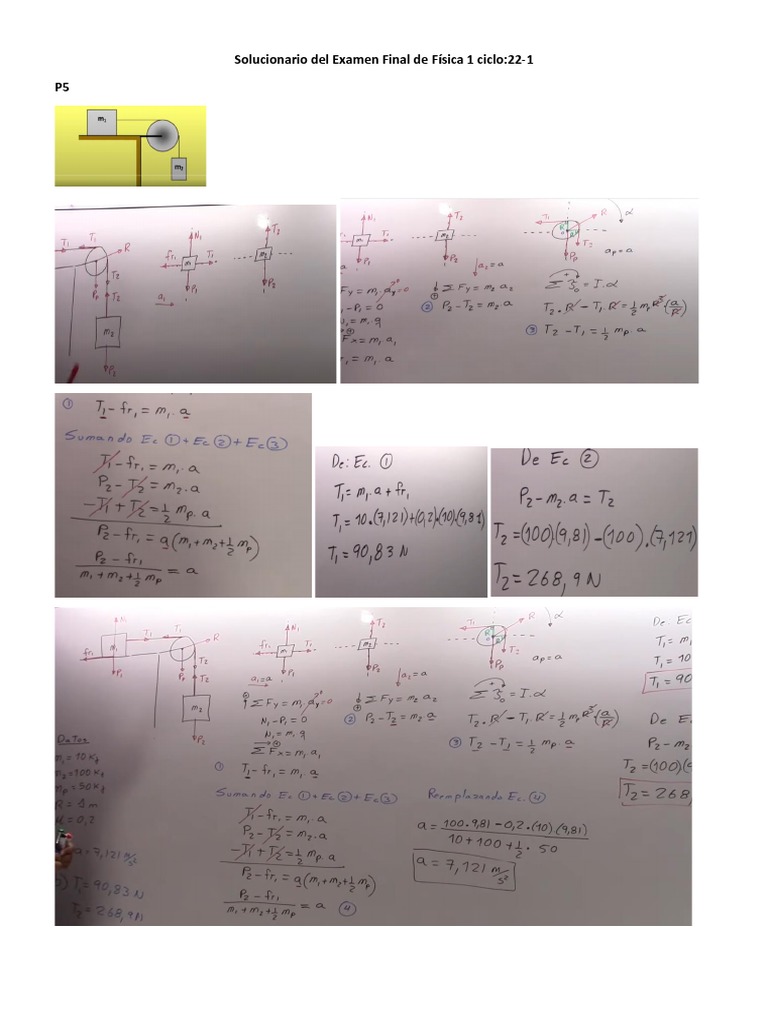 Solucionario del Examen Final de Física 1 ciclo:22-1
P5
m₁
m₂
T₁ T₁ R
Pₚ T₂ T₂
m₂
P₂
N₁
fr₁ m₁ T₁
P₁
a₁
T₂
m₂
P₂
N₁
m₁ T₁
P₁
T₂
m₂
P₂
a₂=a
T₁ R α
R
R
Pₚ T₂
aₚ=a
Fy=m₁.ay=0
₁-P₁=0
N₁=m₁.g
Fx=m₁a₁
r₁=m₁.a
↓ΣFy=m₂a₂
② P₂-T₂=m₂.a
Σζ₀=I.α
T₂.R-T₁.R=½mₚR²(a/R)
③ T₂-T₁=½mₚ.a
① T₁-fr₁=m₁.a
Sumando Ec①+Ec②+Ec③
T₁-fr₁=m₁.a
P₂-T₂=m₂.a
-T₁+T₂=½mₚ.a
P₂-fr₁=a(m₁+m₂+½mₚ)
P₂-fr₁/m₁+m₂+½mₚ=a
De: Ec. ①
T₁=m₁.a+fr₁
T₁=10.(7,121)+(0,2).(10).(9,81)
T₁=90,83N
De Ec ②
P₂-m₂.a=T₂
T₂=(100)(9,81)-(100).(7,121)
T₂=268,9N
N₁
fr₁ m₁ T₁ T₁ R
P₁ Pₚ T₂
T₂
m₂
P₂
N₁
fr₁ m₁ T₁
P₁
a₁=a
T₂
m₂
P₂
a₂=a
T₁ R α
Pₚ T₂
aₚ=a
ΣFy=m₁.ay=0
N₁-P₁=0
N₁=m₁.g
ΣFx=m₁a₁
① T₁-fr₁=m₁.a
↓ΣFy=m₂a₂
② P₂-T₂=m₂a
Σζ₀=I.α
T₂.R-T₁.R=½mₚR²(a/R)
③ T₂-T₁=½mₚ.a
De Ec
T₁=m₁
T₁=10
T₁=90
De E
P₂-m₂
T₂=(100)(9
T₂=268,
Datos
m₁=10Kg
m₂=100Kg
mₚ=50Kg
R=1m
=0,2
a=7,121m/s²
b) T₁=90,83N
T₂=268,9N
Sumando Ec①+Ec②+Ec③
T₁-fr₁=m₁.a
P₂-T₂=m₂.a
-T₁+T₂=½mₚ.a
P₂-fr₁=a(m₁+m₂+½mₚ)
P₂-fr₁/m₁+m₂+½mₚ=a ④
Reemplazando Ec.④
a=100.9,81-0,2.(10)(9,81)/10+100+½.50
a=7,121m/s²